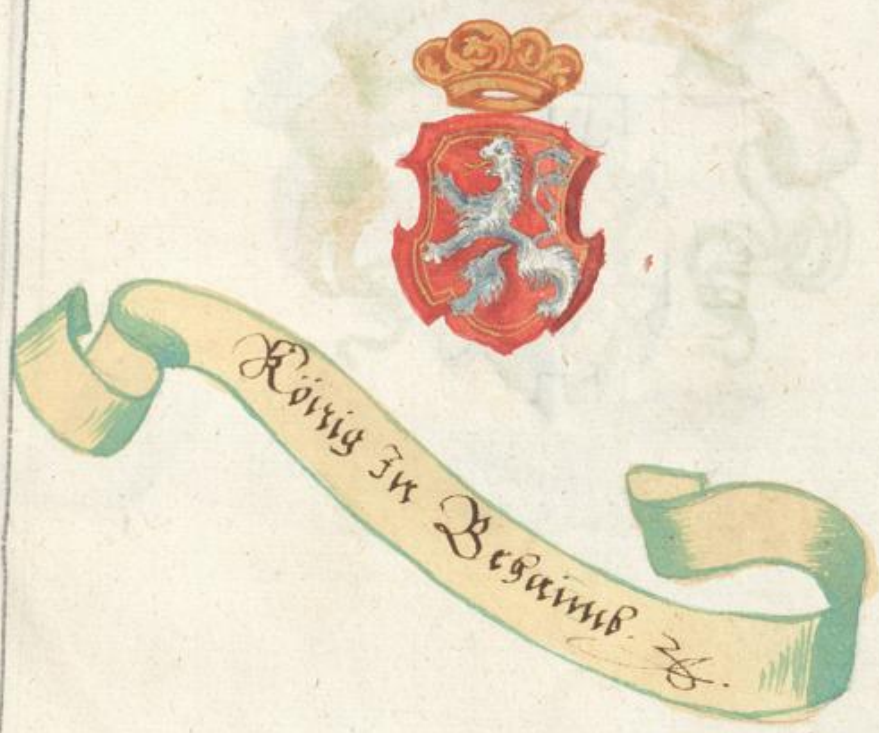 König In Behaimb. ꝛc.